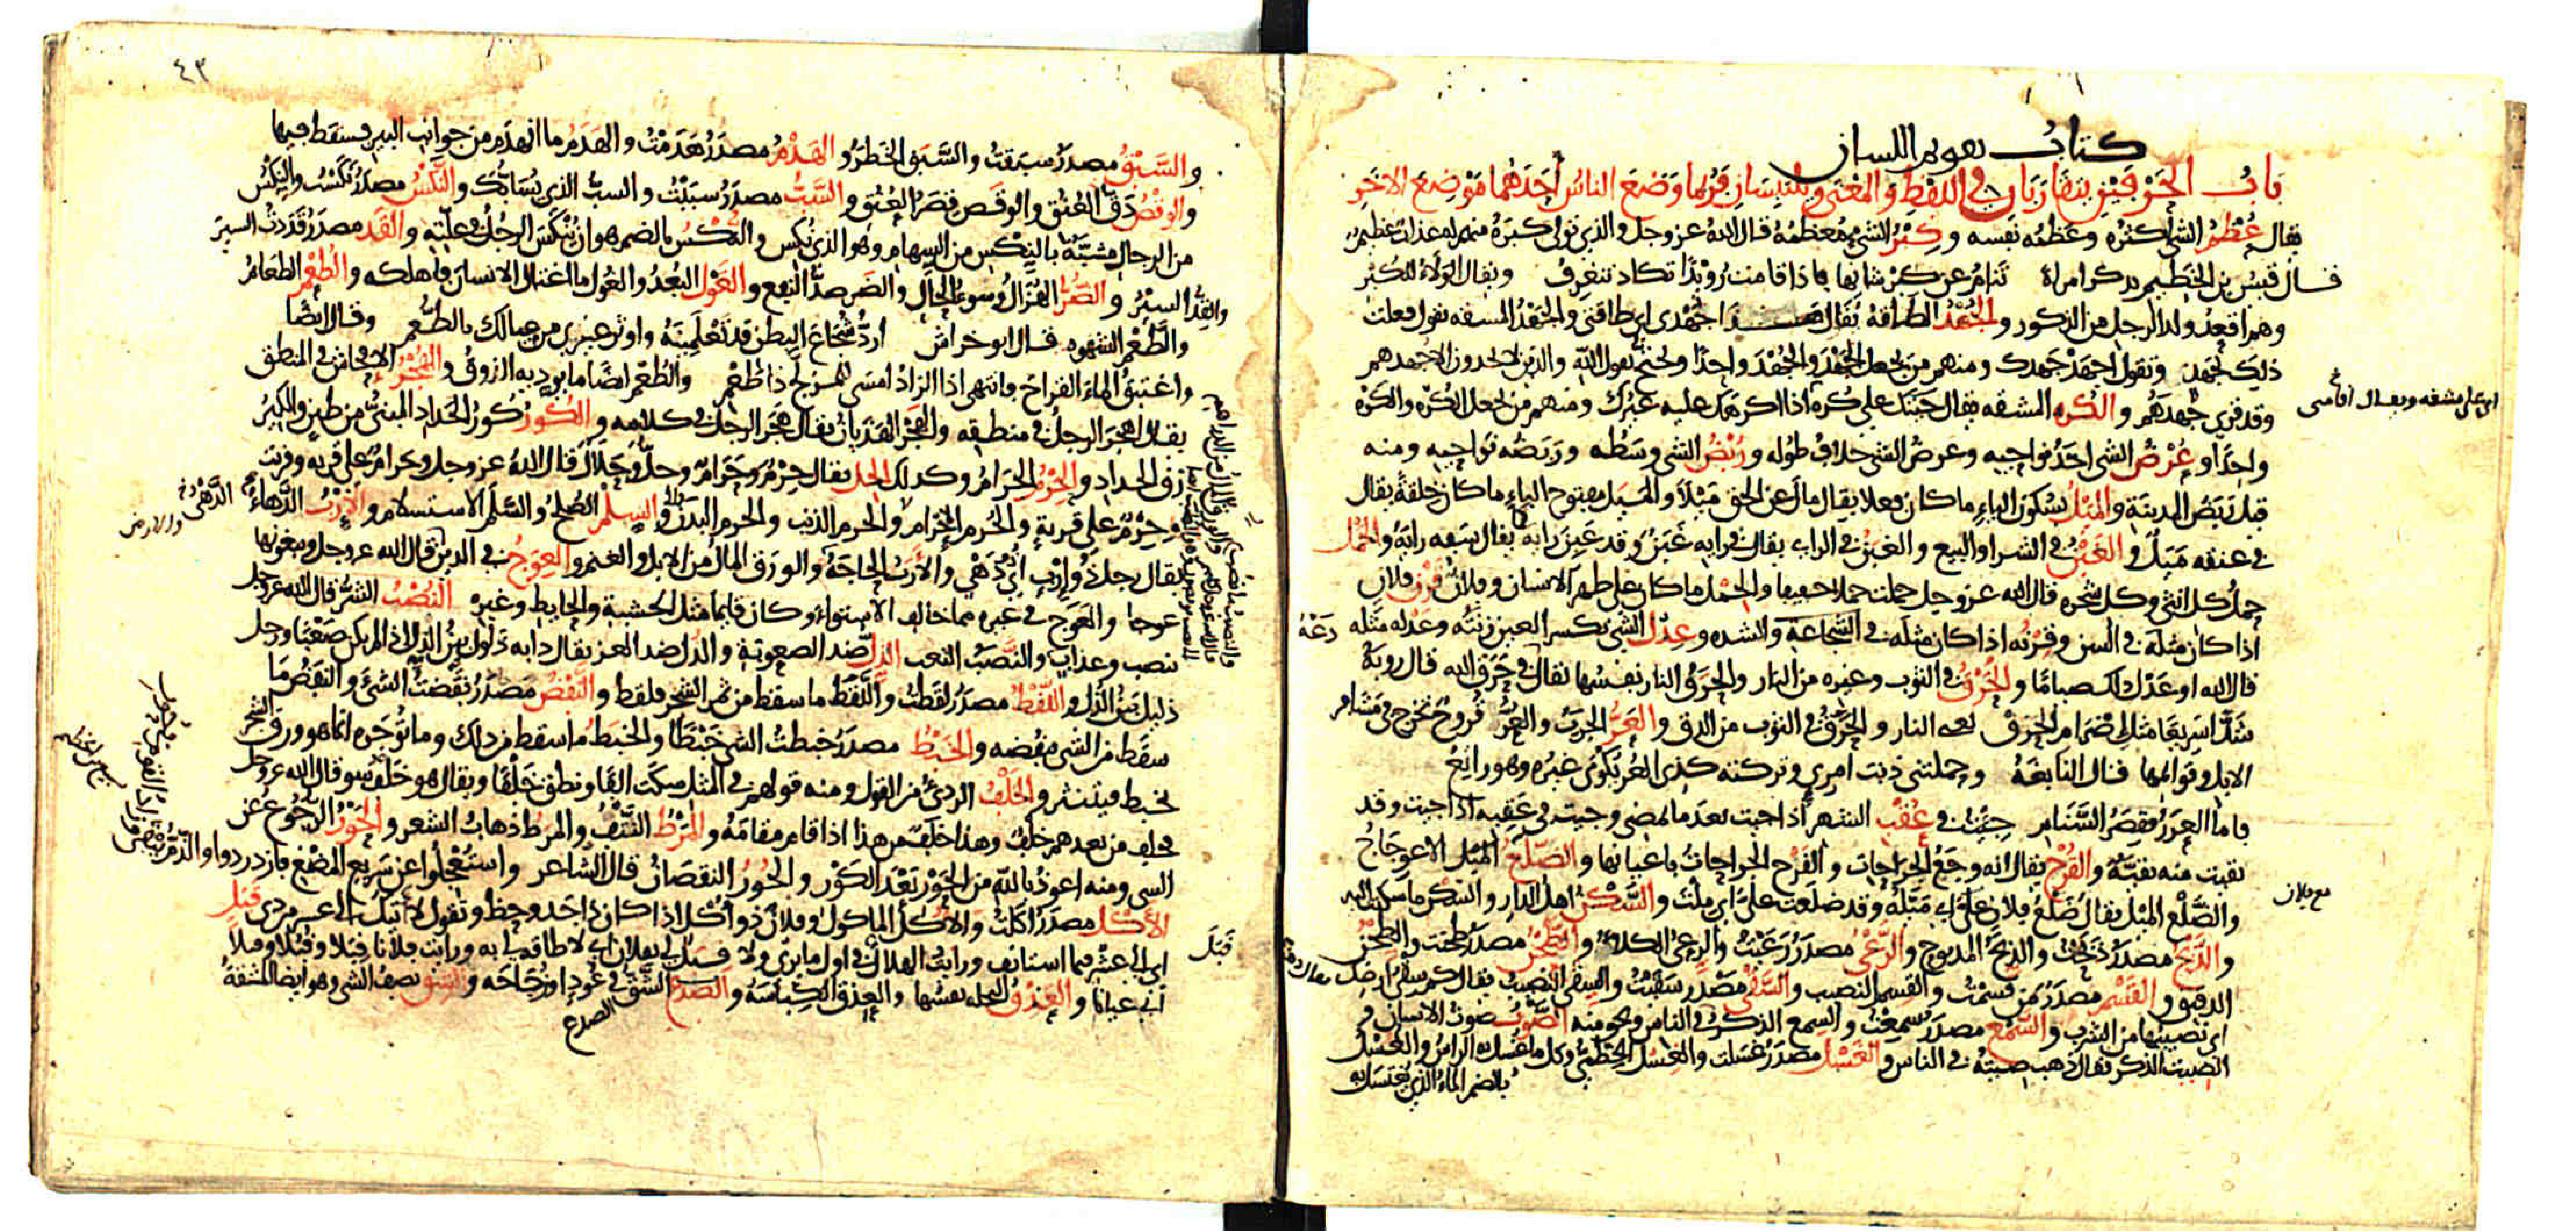 كتاب تقويم اللسان
باب الحرفين يتقاربان في اللفظ والمعنى ويلتبسان فربما وضع الناس أحدهما موضع الآخر
يقال عُظْمُ الشئ أكثره وعظمه نفسه وكِبْرُ الشئ معظمه قال الله عز وجل والذي تولى كبره منهم له عذاب عظيم
قال قيس بن الخطيم يذكر امراة تنام عن كبر شانها فاذا قامت رويدا تكاد تنغرف ويقال الولاء للكبر
وهو اقعد ولد الرجل من الذكور والجُهْد الطاقة يقال هذا جهدي اي طاقتي والجهد المشقه تقول فعلت
ذلك بجهد وتقول اجهد جهدك ومنهم من يجعل الجهد والجهد واحدا ويحتج بقول الله والذين لا يجدون الا جهدهم
وقد قري جهدهم والكره المشقه يقال جيتك على كره اذا اكرهك عليه غيرك ومنهم من يجعل الكره والكره
اي على مشقه ويقال اقامني
واحدا وعُرْض الشي احد نواحيه وعرض الشي خلاف طوله ورُبْضُ الشي وسطه وربضه نواحيه ومنه
قيل ربض المدينة والمَيْل بسكون الياء ما كان فعلا يقال مال عن الحق ميلا والميل مفتوح الياء ما كان خلقة يقال
في عنقه ميل والغَبْن في الشرا والبيع والغبن في الراي يقال في رايه غبن وقد غبن رايه كما يقال سفه رايه والحَمْل
حمل كل انثى وكل شجره قال الله عز وجل حملت حملا خفيفا والحمل ما كان على ظهر الانسان وفلان قَرْن فلان
اذا كان مثله في السن وقرنه اذا كان مثله في الشجاعة والشده وعِدْل الشي بكسر العين زنته وعدله مثله
قال الله او عدل ذلك صياما والحَرْق في الثوب وغيره من النار والحرق النار نفسها يقال في حرق الله قال روبة
شدا سريعا مثل اضرام الحرق يعني النار والحرق في الثوب من الدق والعَرُّ الجرب والعر قروح تخرج في مشافر
الابل وقوائمها قال النابغة وحملتني ذنب امرئ وتركته كذي العر يكوى غيره وهو راتع
فاما العرر فقصر السنام جئت في عُقْب الشهر اذا جيت بعد ما يمضي وجيت في عقبه اذا جيت وقد
بقيت منه بقية والقُرْح يقال انه وجع الجراحات والقرح الجراحات باعيانها والضلع الميل الاعوجاج
والضلع الميل يقال ضلع فلان علي اي ميله وقد ضلعت علي اي ملت والسَّكْن اهل الدار والسكن ما سكنت اليه
مع فلان
والذبح مصدر ذبحت والذبح المذبوح والرعي مصدر رعيت والرعي الكلا والطحن مصدر طحنت والطحن
الدقيق والقسم مصدر قسمت والقسم النصيب والسقي مصدر سقيت والسقي النصيب يقال كم سقي ارضك
اي نصيبها من الشرب والسمع مصدر سمعت والسمع الذكر في الناس ونحو منه الصوت صوت الانسان و
الصيت الذكر يقال ذهب صيته في الناس والغسل مصدر غسلت والغسل الخطمي وكل ما غسل به الراس والغسل
بالضم الماء الذي يغتسل به
٤٣
والسَّبْق مصدر سبقت والسبق الخطر والهَدْم مصدر هدمت والهدم ما انهدم من جوانب البير فسقط فيها
والوقص دق العنق والوقص قصر العنق والسب مصدر سببت والسب الذي يسابك والنكس مصدر نكست والنكس
من الرجال مشبه بالنكس من السهام وهو الذي نكس والنكس بالضم هو ان ينكس الرجل في علته والقد مصدر قددت السير
والقد السير والضر الهزال وسوء الحال والضر ضد النفع والغول البعد والغول ما اغتال الانسان فاهلكه والطعم الطعام
والطعم الشهوه قال ابو خراش ارد شجاع البطن قد تعلمينه واوثر غيري من عيالك بالطعم وقال ايضا
واغتبق الماء القراح فانتهي اذا الزاد امسى للمزلج ذا طعم والطعم ايضا ما يوديه الذوق والهجر الافحاش في المنطق
يقال اهجر الرجل في منطقه والهجر الهذيان يقال هجر الرجل في كلامه والكور كور الحداد المبني من طين والكير
زق الحداد والحرم الحرام وكذلك الحل يقال حرم وحرام وحل وحلال قال الله عز وجل وحرام على قرية وقريت
وحرم على قرية والحرم الاحرام والجرم الذنب والجرم البدن والسلم الصلح والسلم الاستسلام والارب الدهاء
يقال رجل ذو ارب اي دهي والارب الحاجة والورق المال من الابل والغنم والعوج في الدين قال الله عز وجل ويبغونها
عوجا والعوج في غيره مما خالف الاستواء وكان قايما مثل الخشبة والحايط وغيره النصب الشر قال الله عز وجل
بنصب وعذاب والنصب التعب الذل ضد الصعوبة والذل ضد العز يقال دابه ذلول بين الذل اذا لم يكن صعبا ورجل
ذليل بين الذل واللقط مصدر لقطت واللقط ما سقط من ثمر الشجر فلقط والنفض مصدر نفضت الشئ والنفض ما
سقط من الشي تنفضه والخبط مصدر خبطت الشي خبطا والخبط ما سقط من ذلك وما توجره انما هو ورق الشجر
يخبط فينتثر والخلف الردي من القول ومنه قولهم في المثل سكت الفا ونطق خلفا ويقال هو خلف سو قال الله عز وجل
فخلف من بعدهم خلف وهذا خلف من هذا اذا قام مقامه والمرط النتف والمرط ذهاب الشعر والحور الرجوع عن
الشي ومنه اعوذ بالله من الحور بعد الكور والحور النقصان قال الشاعر واستعجلوا عن سريع المضغ فازدردوا والذم يبقى وزاد القوم في حور
الاكل مصدر اكلت والاكل الماكول وفلان ذو اكل اذا كان ذا حد وحظ وتقول لا اتيك الى عشر من ذي قبل
اي الى عشر فيما استانف ورايت الهلال في اول ما يرى ولا قبل لي بفلان اي لا طاقة لي به ورايت فلانا قبلا وقبلا وقبلا
اي عيانا والعذق النخله نفسها والعذق الكباسة والصدع الشق في عود او زجاجه والشق نصف الشي وهو ايضا المشقة
الصدع